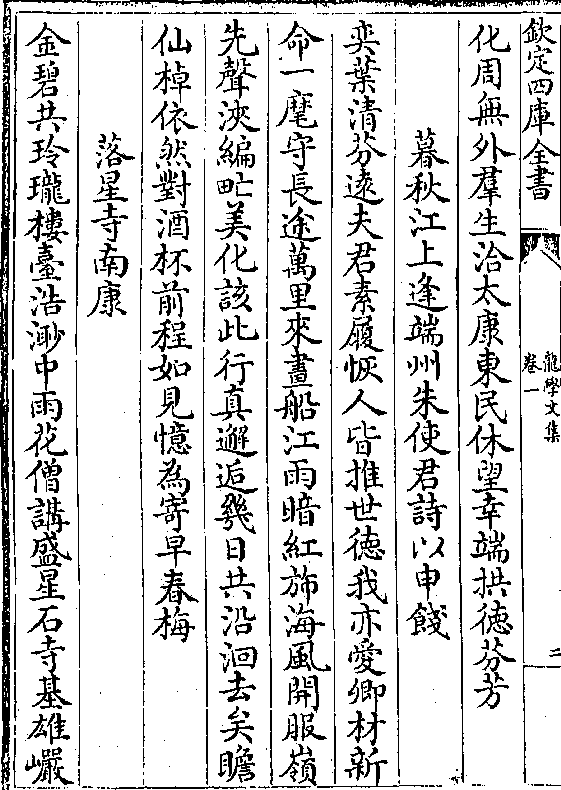 欽定四庫全書
龍學文集
卷一
二
化周無外羣生洽太康東民休望幸端拱徳芬芳
暮秋江上逢端州朱使君詩以申餞
奕葉清芬逺夫君素履恢人皆推世徳我亦愛卿材新
命一麾守長途萬里來畫船江雨暗紅斾海風開服嶺
先聲浹編甿美化該此行真邂逅幾日共沿洄去矣瞻
仙棹依然對酒杯前程如見憶為寄早春梅
落星寺南康
金碧共玲瓏樓臺浩渺中雨花僧講盛星石寺基雄巖